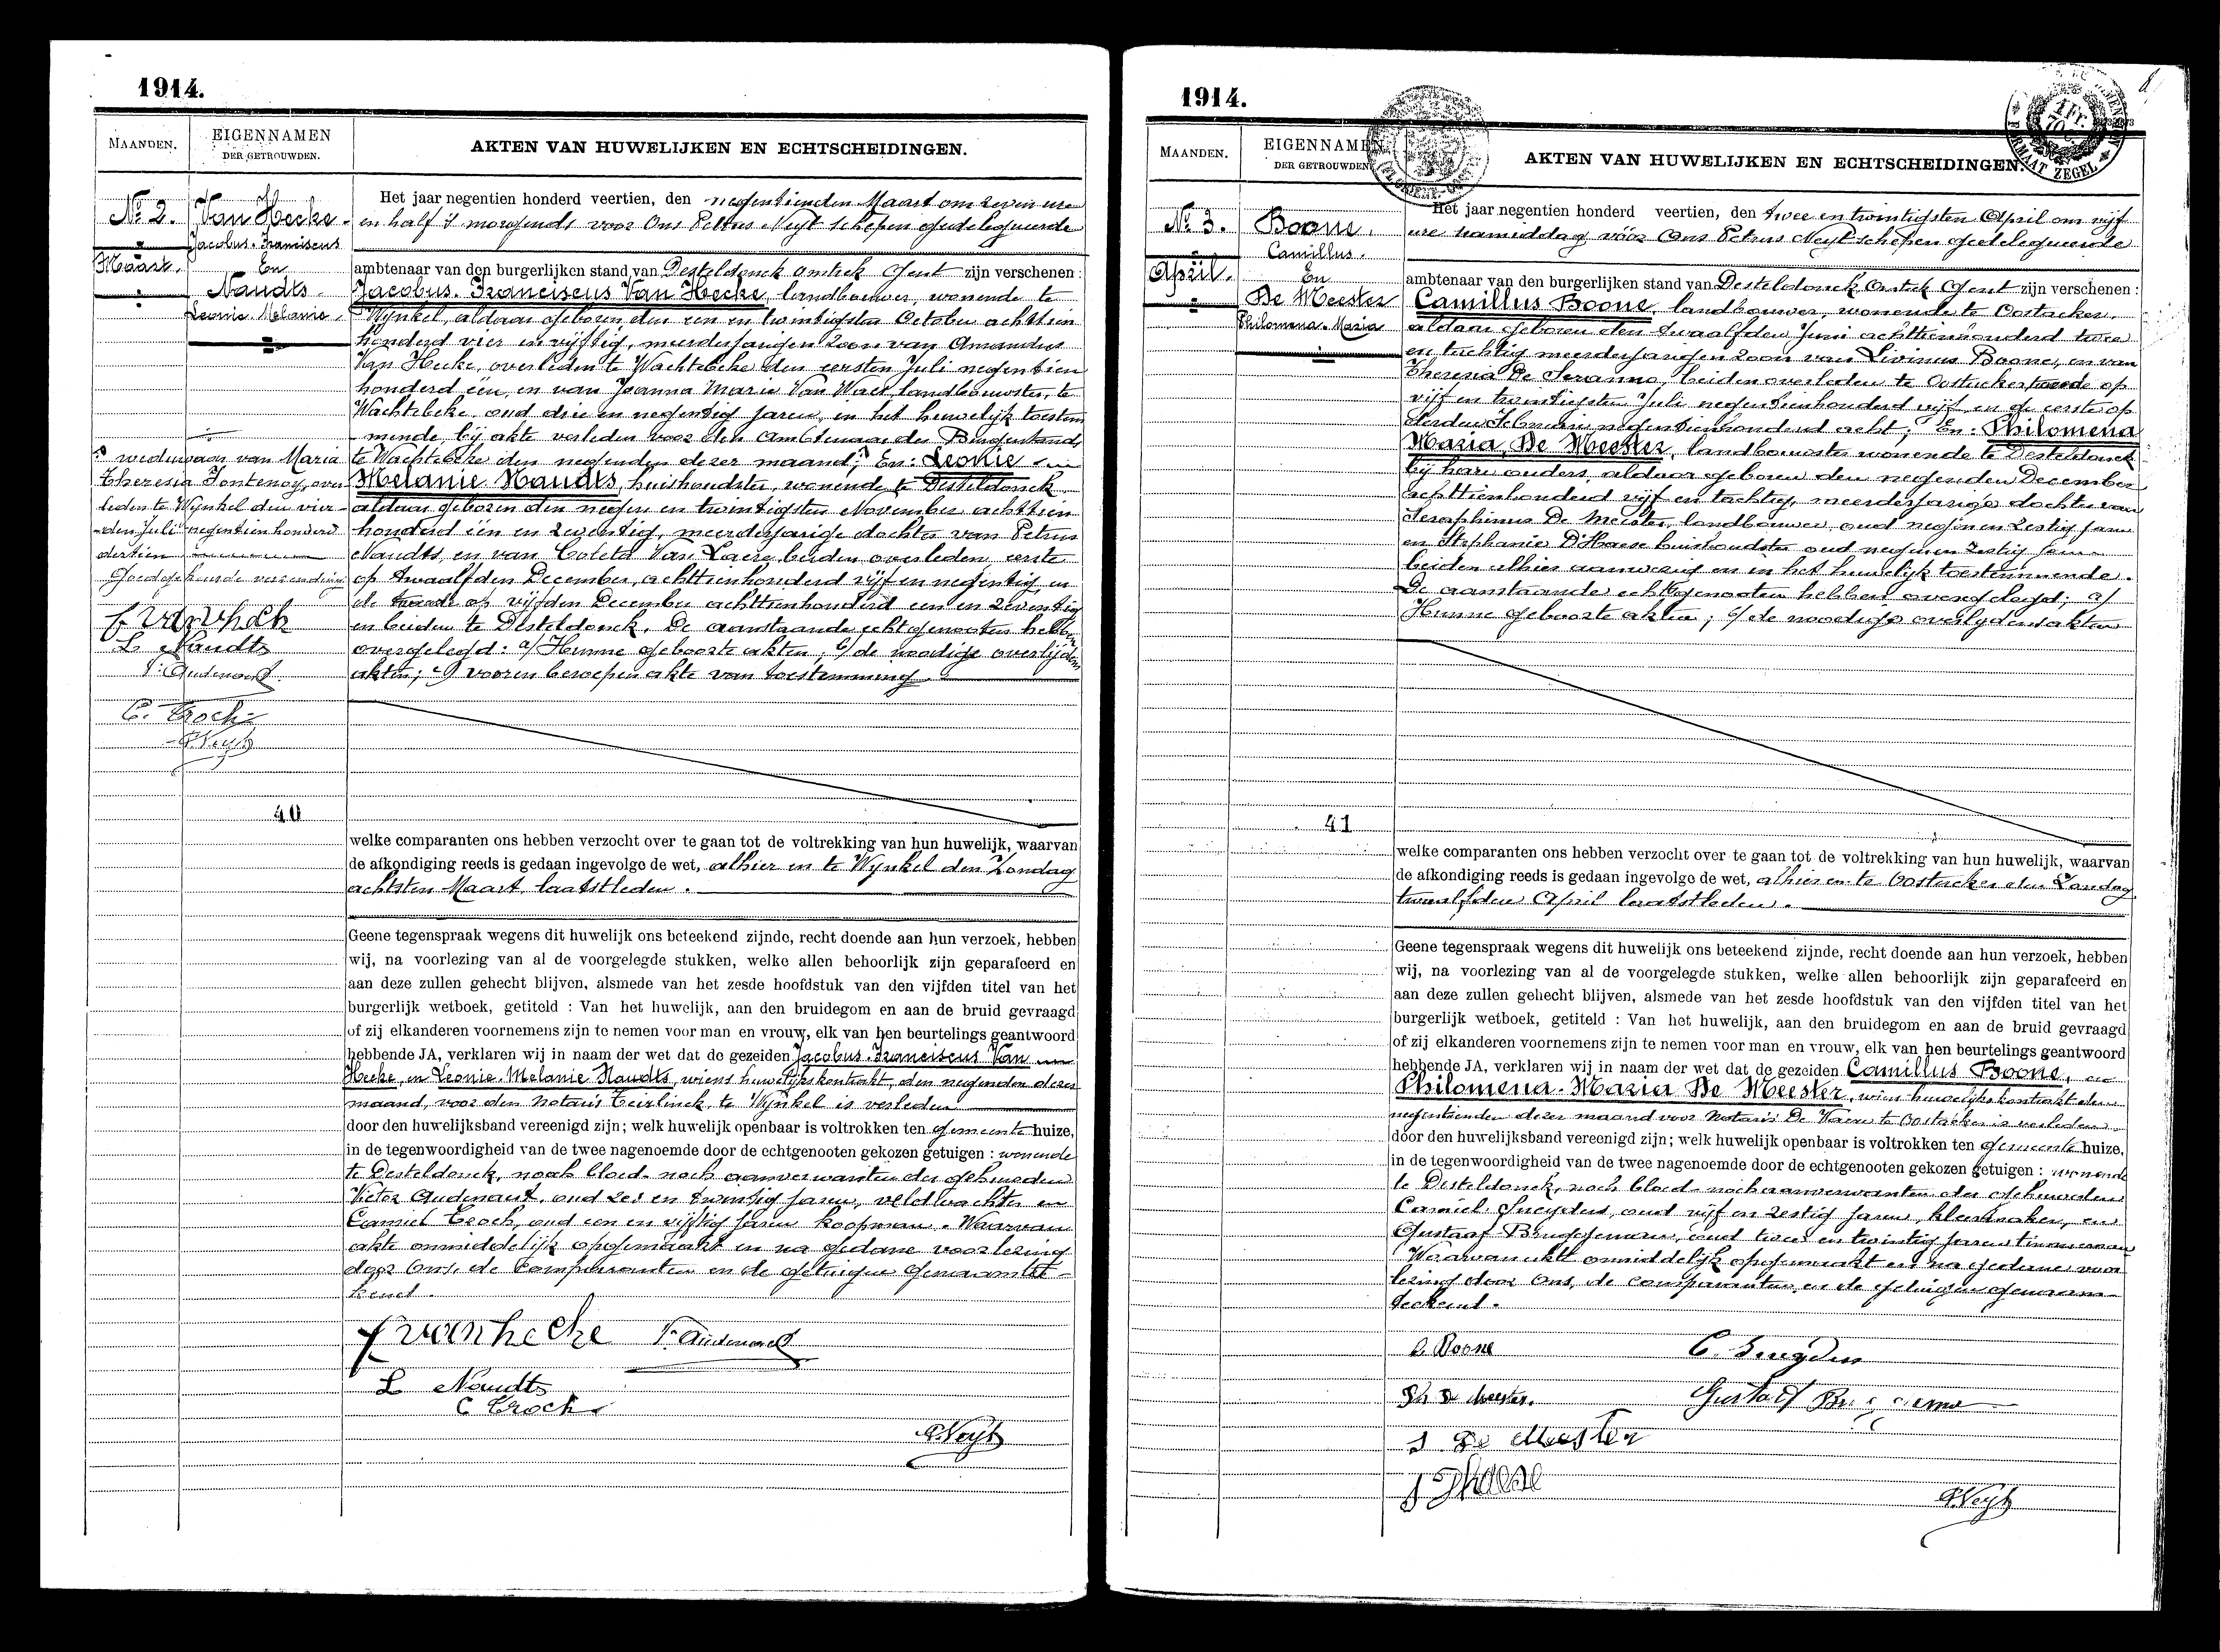 1914.
MAANDEN.
EIGENNAMEN
DER GETROUWDEN.
AKTEN VAN HUWELIJKEN EN ECHTSCHEIDINGEN.
No 2.
Maart.
Van Hecke
Jacobus Franciscus
En
Naudts
Leonie Melanie.
Het jaar negentien honderd veertien, den negentienden Maart om zeven ure
en half 's morgends voor Ons Petrus Neyt schepen gedelegueerde
ambtenaar van den burgerlijken stand van Desteldonck Gent zijn verschenen :
Jacobus. Franciscus Van Hecke, landbouwer, wonende te
Wynkel, aldaar geboren den een en twintigsten October achttien
honderd vier en vijftig, meerderjarigen zoon van Amandus
Van Hecke, overleden te Wachtebeke den eersten Juli negentien
honderd één, en van Joanna Maria Van Waes, landbouwster, te
Wachtebeke, oud drie en negentig jaren, en het huwelijk toestem
mende, bij akte verleden voor den Ambtenaar der Burgerstand,
te Wachtebeke den negenden dezer maand; En: Leonie
Melanie Naudts, huishoudster, wonende te Desteldonck
aldaar geboren den negen en twintigsten November achttien
honderd één en zeventig, meerderjarige dochter van Petrus
Naudts, en van Coleta Van Laere, beiden overleden, eerste
op twaalfden December, achttienhonderd vijf en negentig, en
de tweede op vijfden December achttienhonderd een en zeventig
en beiden te Desteldonck. De aanstaande echtgenooten hebben
overgelegd: a/ Hunne geboorte akten; b/ de noodige overlijdens
akten; c/ vooren beroepen akte van toestemming.
weduwaar van Maria
Theresia Fontenoy, over
leden te Wynkel den vier-
den Juli negentien honderd
dertien
Goedgekeurde verzending
f vanheck
L Naudts
V. Audenaert
C. Troch
PNeyt
40
welke comparanten ons hebben verzocht over te gaan tot de voltrekking van hun huwelijk, waarvan
de afkondiging reeds is gedaan ingevolge de wet, alhier en te Wynkel den Zondag
achtsten Maart laatstleden.
Geene tegenspraak wegens dit huwelijk ons beteekend zijnde, recht doende aan hun verzoek, hebben
wij, na voorlezing van al de voorgelegde stukken, welke allen behoorlijk zijn geparafeerd en
aan deze zullen gehecht blijven, alsmede van het zesde hoofdstuk van den vijfden titel van het
burgerlijk wetboek, getiteld : Van het huwelijk, aan den bruidegom en aan de bruid gevraagd
of zij elkanderen voornemens zijn te nemen voor man en vrouw, elk van hen beurtelings geantwoord
hebbende JA, verklaren wij in naam der wet dat de gezeiden Jacobus. Franciscus Van
Hecke, en Leonie. Melanie Naudts, wiens huwelijkskontrakt, den negenden dezer
maand, voor den Notaris Teirlinck, te Wynkel is verleden
door den huwelijksband vereenigd zijn; welk huwelijk openbaar is voltrokken ten gemeente huize,
in de tegenwoordigheid van de twee nagenoemde door de echtgenooten gekozen getuigen : wonende
te Desteldonck, noch bloed- noch aanverwanten der gehuwden
Victor Audenaert, oud zes en twintig jaren, veldwachter en
Camiel Troch, oud een en vijftig jaren koopman. Waarvan
akte onmiddelijk opgemaakt en na gedane voorlezing
door Ons, de Comparanten en de getuigen genaamtee-
kend.
f vanhecke V. Audenaert
L Naudts
C Troch
PNeyt
1914.
MAANDEN.
EIGENNAMEN
DER GETROUWDEN
AKTEN VAN HUWELIJKEN EN ECHTSCHEIDINGEN.
1 Fr.
ZEGEL
No 3.
April.
Boone.
Camillus.
En
De Meester
Philomena. Maria
Het jaar negentien honderd veertien, den twee en twintigsten April om vijf
ure namiddag vóór Ons Petrus Neyt schepen gedelegueerde
ambtenaar van den burgerlijken stand van Desteldonck Gent zijn verschenen :
Camillus Boone, landbouwer, wonende te Oostacker,
aldaar geboren den twaalfden Juni achttienhonderd twee
en tachtig meerderjarigen zoon van Livinus Boone, en van
Theresia De Seranno, beiden overleden te Oostacker tweede op
vijf en twintigsten Juli negentienhonderd vijf en de eerste op
derden Februarie negentienhonderd acht; En: Philomena
Maria, De Meester, landbouwster wonende te Desteldonck
bij hare ouders, aldaar geboren den negenden December
achttienhonderd vijf en tachtig, meerderjarige dochter van
Seraphinus De Meester, landbouwer, oud negen en zestig jaren
en Stephanie D'Haese huishoudster oud negen en zestig jaren
beiden alhier aanwezig en in het huwelijk toestemmende.
De aanstaande echtgenooten hebben overgelegd; a/
Hunne geboorte akten; b/ de noodige overlydensakten
41
welke comparanten ons hebben verzocht over te gaan tot de voltrekking van hun huwelijk, waarvan
de afkondiging reeds is gedaan ingevolge de wet, alhier en te Oostacker den Zondag
twaalfden April laatstleden.
Geene tegenspraak wegens dit huwelijk ons beteekend zijnde, recht doende aan hun verzoek, hebben
wij, na voorlezing van al de voorgelegde stukken, welke allen behoorlijk zijn geparafeerd en
aan deze zullen gehecht blijven, alsmede van het zesde hoofdstuk van den vijfden titel van het
burgerlijk wetboek, getiteld : Van het huwelijk, aan den bruidegom en aan de bruid gevraagd
of zij elkanderen voornemens zijn te nemen voor man en vrouw, elk van hen beurtelings geantwoord
hebbende JA, verklaren wij in naam der wet dat de gezeiden Camillus Boone, en
Philomena. Maria De Meester, wiens huwelijkskontrakt den
negentienden dezer maand voor Notaris De Vaere te Oostacker is verleden
door den huwelijksband vereenigd zijn; welk huwelijk openbaar is voltrokken ten gemeente huize,
in de tegenwoordigheid van de twee nagenoemde door de echtgenooten gekozen getuigen : wonende
te Desteldonck, noch bloed- noch aanverwanten der gehuwden
Camiel Sneyders, oud vijf en zestig jaren, kleermaker, en
Gustaaf Bruggeman, oud twee en twintig jaren timmerman
Waarvan akte onmiddelijk opgemaakt en na gedane voor
lezing door Ons, de comparanten, en de getuigen genaam-
teekend.
C Boone C. Sneyders
Ph De Meester. Gustaaf
S De Meester
S D'haese
PNeyt